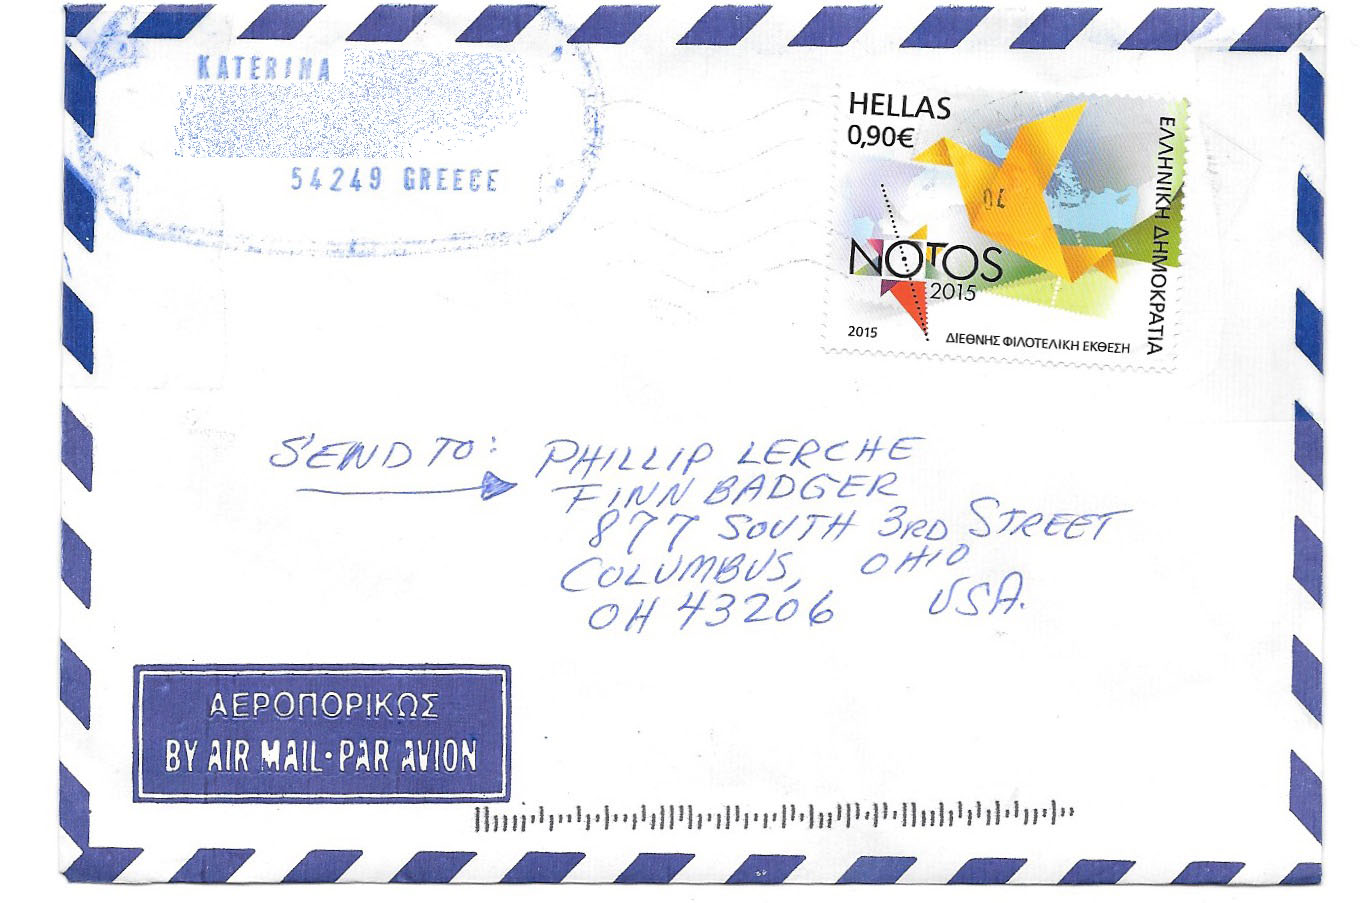 KATERINA
54249 GREECE
HELLAS
0,90€
ΕΛΛΗΝΙΚΗ ΔΗΜΟΚΡΑΤΙΑ
04
NOTOS
2015
2015
ΔΙΕΘΝΗΣ ΦΙΛΟΤΕΛΙΚΗ ΕΚΘΕΣΗ
SEND TO: PHILLIP LERCHE
FINN BADGER
877 SOUTH 3RD STREET
COLUMBUS, OHIO
OH 43206 USA.
ΑΕΡΟΠΟΡΙΚΩΣ
BY AIR MAIL·PAR AVION